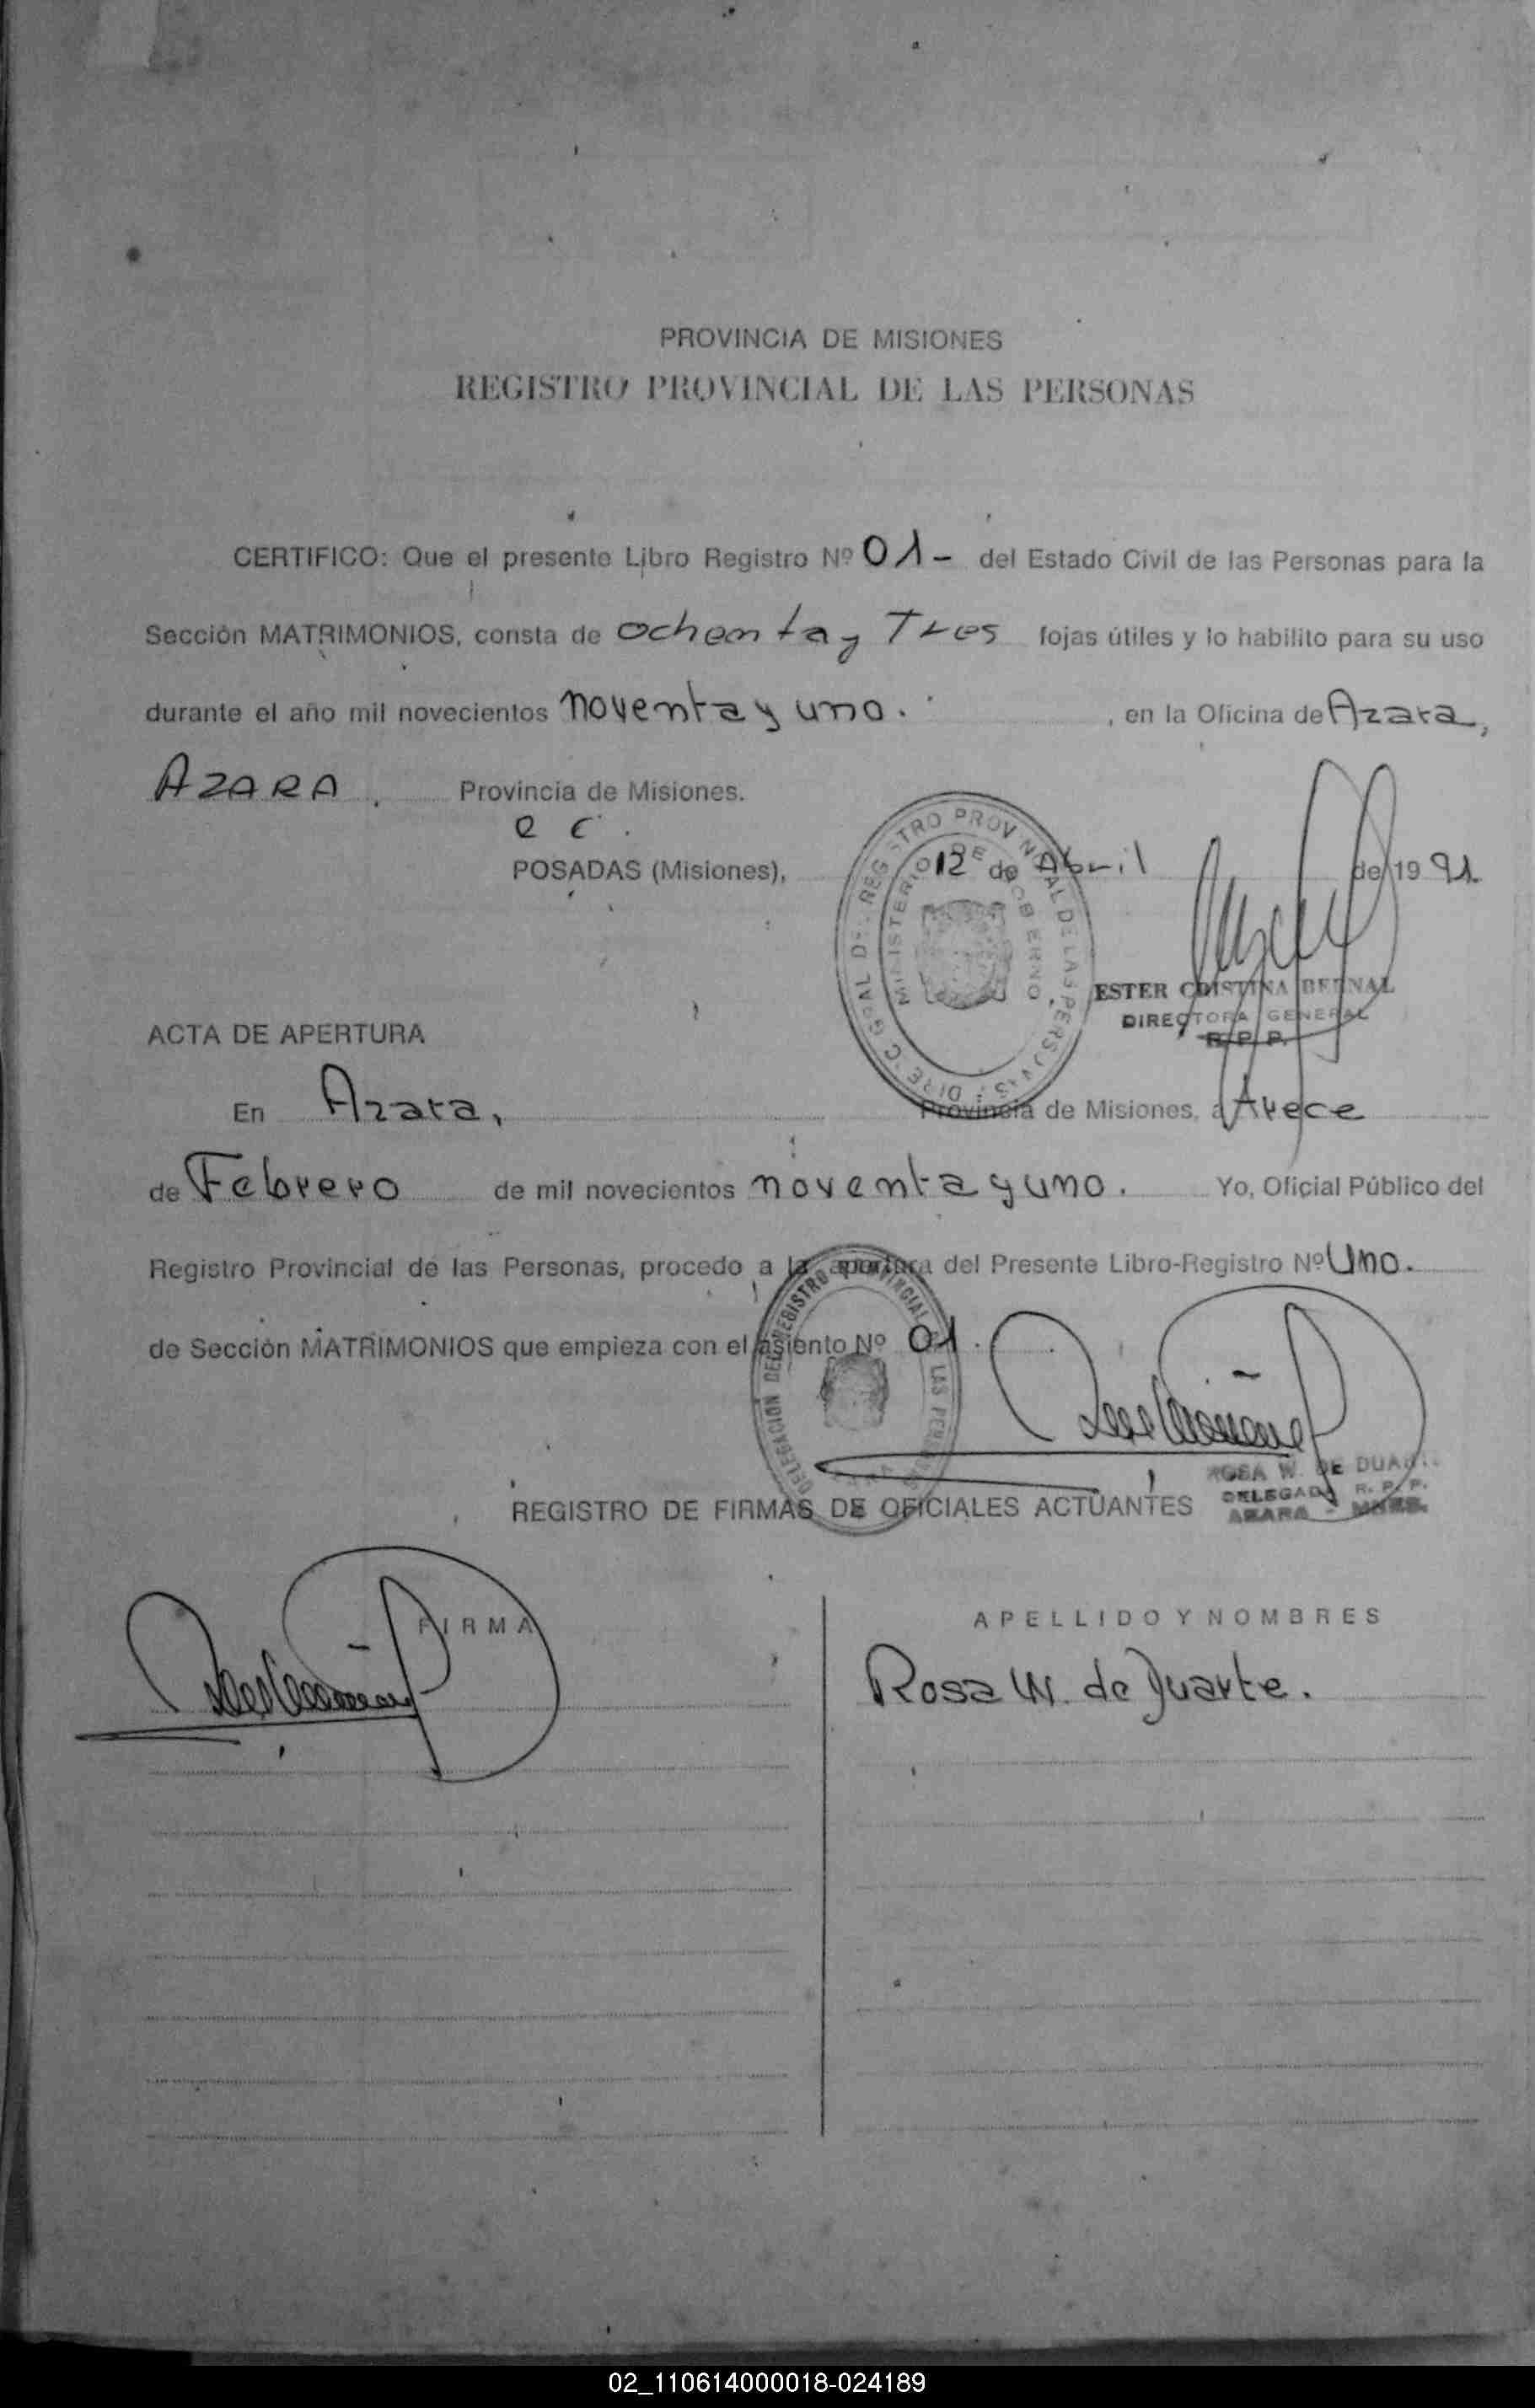 PROVINCIA DE MISIONES
REGISTRO PROVINCIAL DE LAS PERSONAS
CERTIFICO: Que el presente Libro Registro Nº 01- del Estado Civil de las Personas para la
Sección MATRIMONIOS, consta de ochenta y Tres fojas útiles y lo habilito para su uso
durante el año mil novecientos noventa y uno. , en la Oficina de Azara,
AZARA, Provincia de Misiones.
POSADAS (Misiones), 12 de Abril de 19 91
DIREC. GRAL DEL REGISTRO PROVINCIAL DE LAS PERSONAS
MINISTERIO DE GOBIERNO
ESTER CRISTINA BERNAL
DIRECTORA GENERAL
R. P. P.
ACTA DE APERTURA
En Azara, Provincia de Misiones, a trece
de Febrero de mil novecientos noventa y uno. Yo, Oficial Público del
Registro Provincial de las Personas, procedo a la apertura del Presente Libro-Registro Nº Uno.
de Sección MATRIMONIOS que empieza con el asiento Nº 01.
DELEGACION DEL REGISTRO PROVINCIAL DE LAS PERSONAS
ROSA W. DE DUARTE
DELEGADA R. P. P.
AZARA - MNES.
REGISTRO DE FIRMAS DE OFICIALES ACTUANTES
FIRMA
APELLIDO Y NOMBRES
Rosa W. de Duarte.
02_110614000018-024189